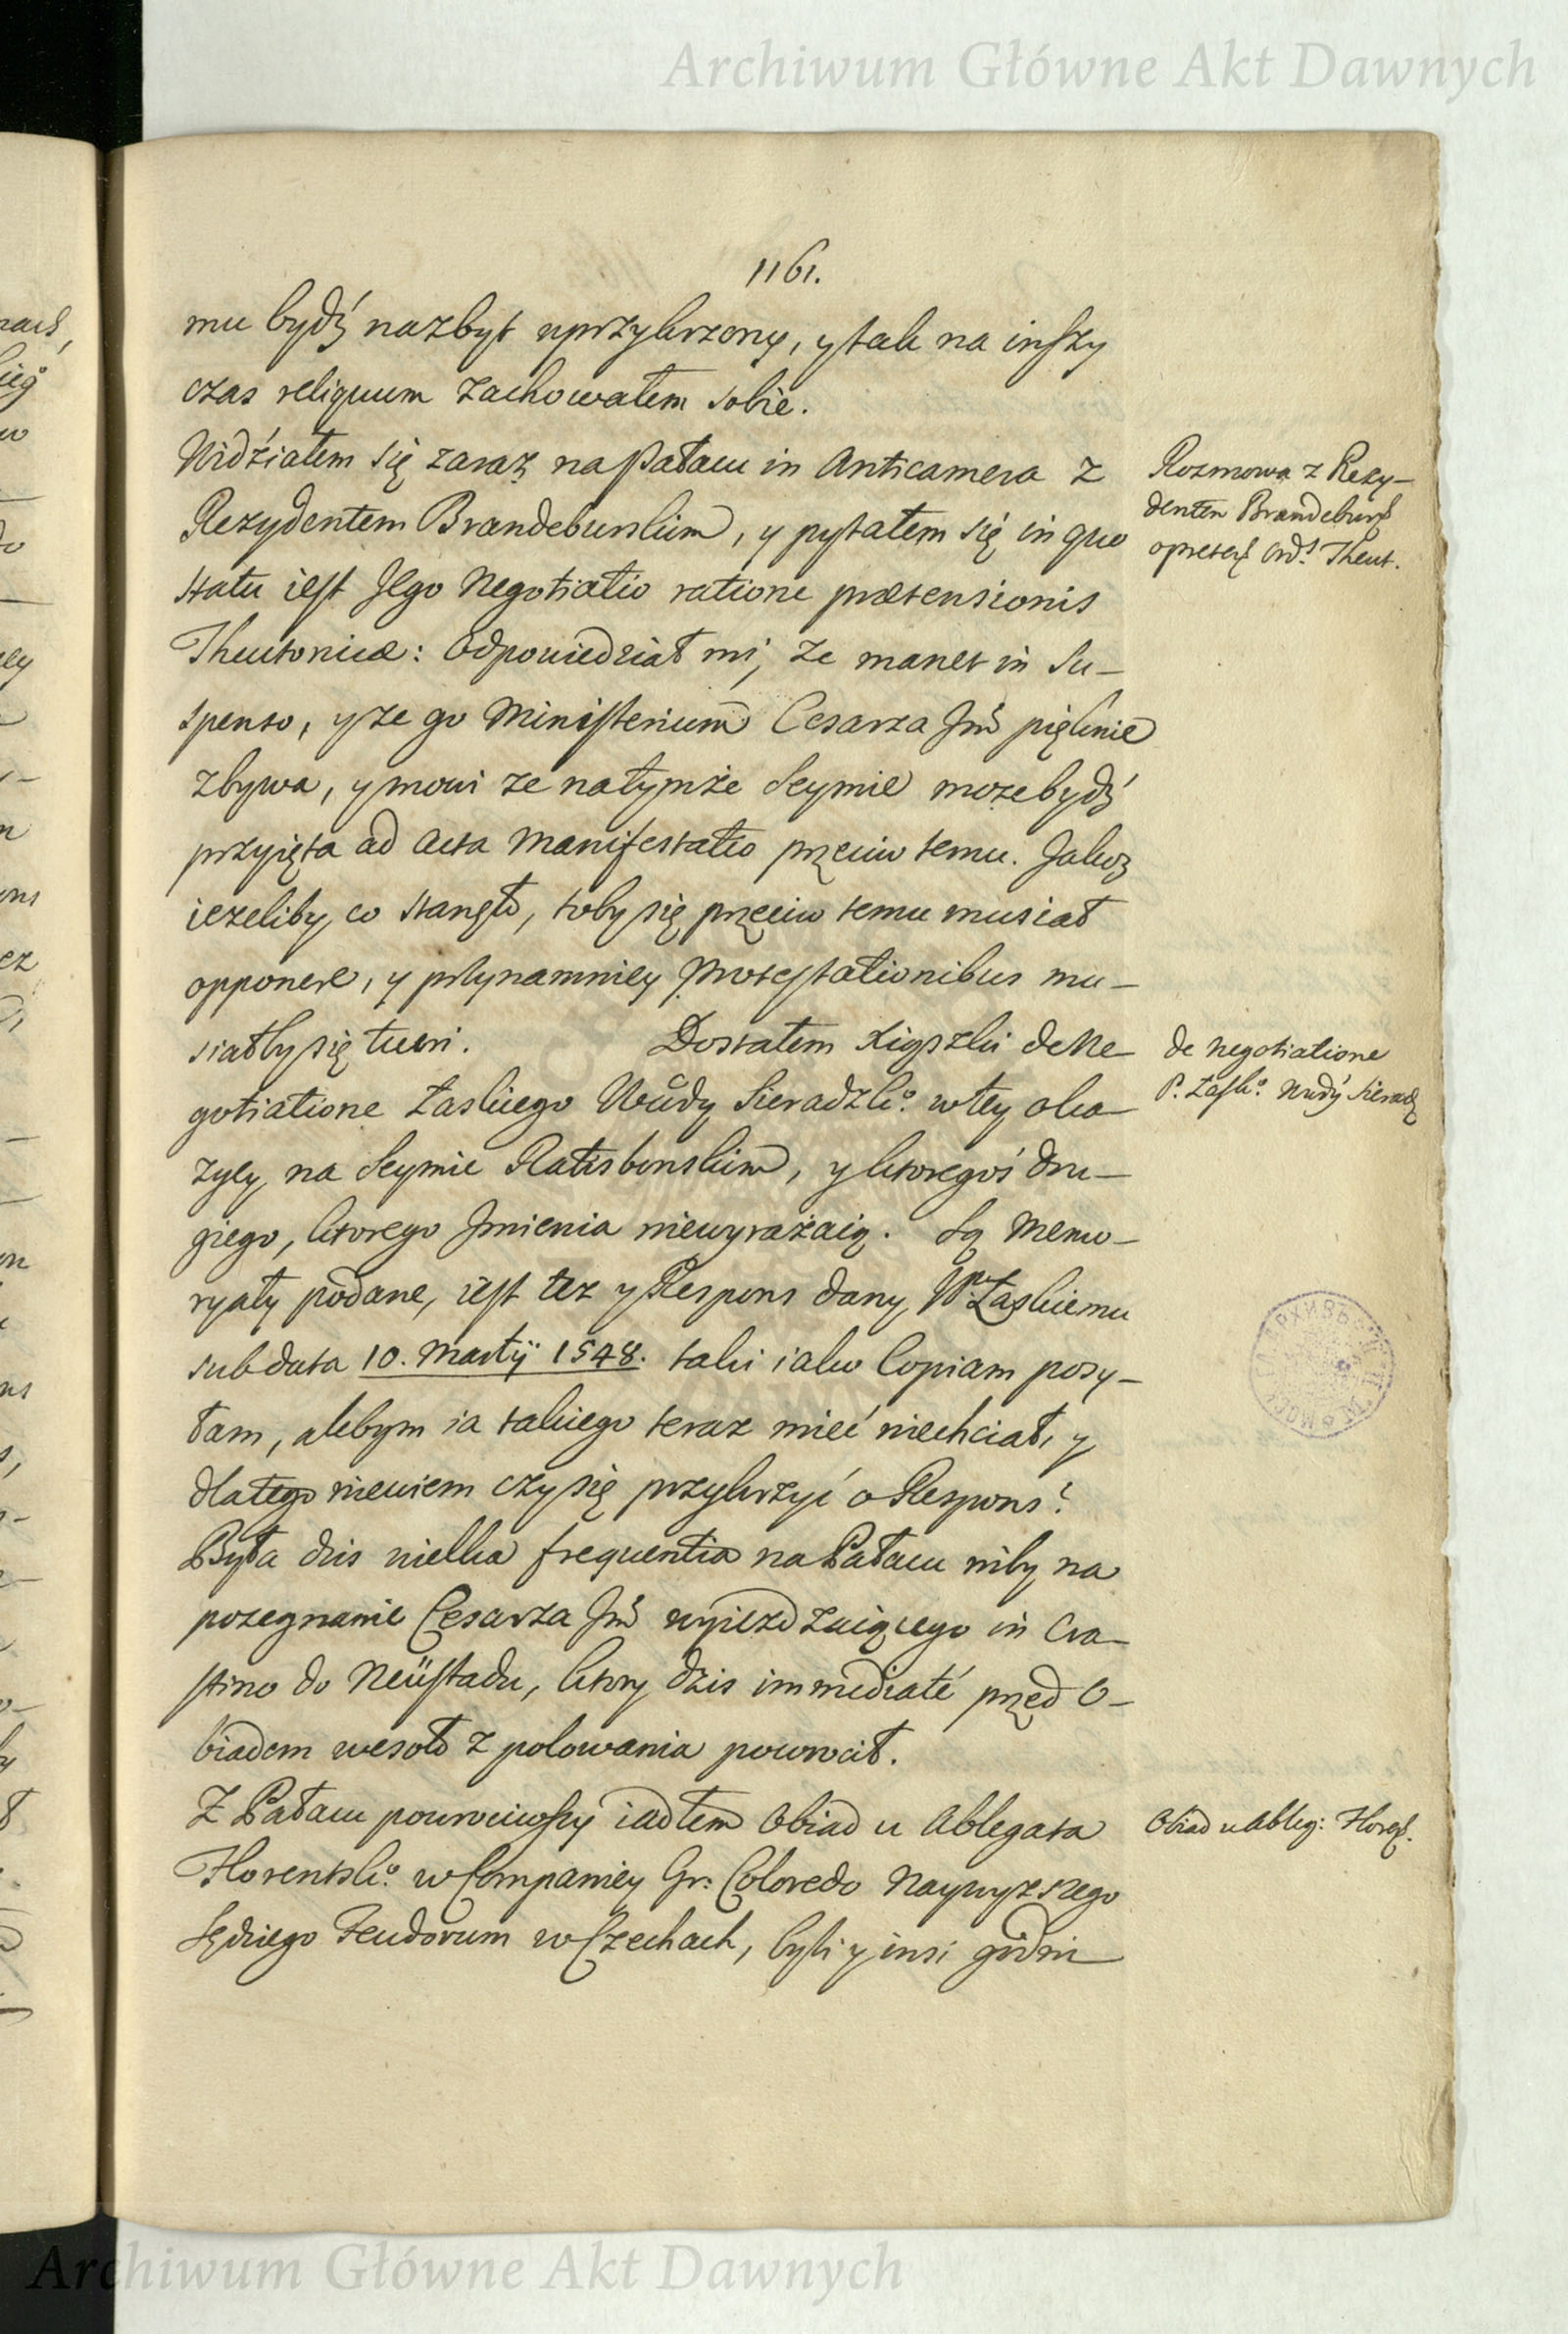 Archiwum Główne Akt Dawnych
1161.
mu bydź nazbyt uprzykrzony, y tak na inszy
czas reliquum zachowałem sobie.
Widziałem się zaraz na Pałacu in Anticamera z
Rezydentem Brandeburskim, y pytałem się in quo
statu iest Jego Negotiatio ratione prætensionis
Theutonicæ: Odpowiedział mi, że manet in Su-
spenso, y że go Ministerium Cesarza Jmć pięknie
zbywa, y mowi ze na tymże Seymie może bydź
przyięta ad Acta Manifestatio przeciw temu. Jakoż
ieżeliby co stanęło, toby się przeciw temu musiał
opponere, y przynamniey Protestationibus mu-
siałby się tueri. Dostałem Xiąszki de Ne-
gotiatione Łaskiego Wdy Sieradzkº. w tey oka-
zyey na Seymie Ratisbonskim, y ktoregoś dru-
giego, ktorego Jmienia niewyrażaią. Są Memo-
ryały podane, iest też y Respons dany JP. Łaskiemu
sub data 10. Martij 1548. taki iako Copiam posy-
łam, alebym ia takiego teraz mieć niechciał, y
dlatego niewiem czy się przykrzyć o Respons?
Była dzis wielka frequentia na Pałacu niby na
pożegnanie Cesarza Jmć wyieżdzaiącego in Cra-
stino do Neüstadu, ktory dzis immediaté przed O-
biadem wesoło z polowania powrocił.
Z Pałacu powrociwszy iadłem Obiad u Ablegata
Florentskº. w Kompaniey Gr: Coloredo Naywyższego
Sędziego Feudorum w Czechach, byli y insi godni
Rozmowa z Rezy-
dentem Brandeburs.
o pretens. Ord. Theut.
de Negotiatione
P. Łaskº. Wdy Sieradz.
Obiad u Ableg: Florens.
Archiwum Główne Akt Dawnych